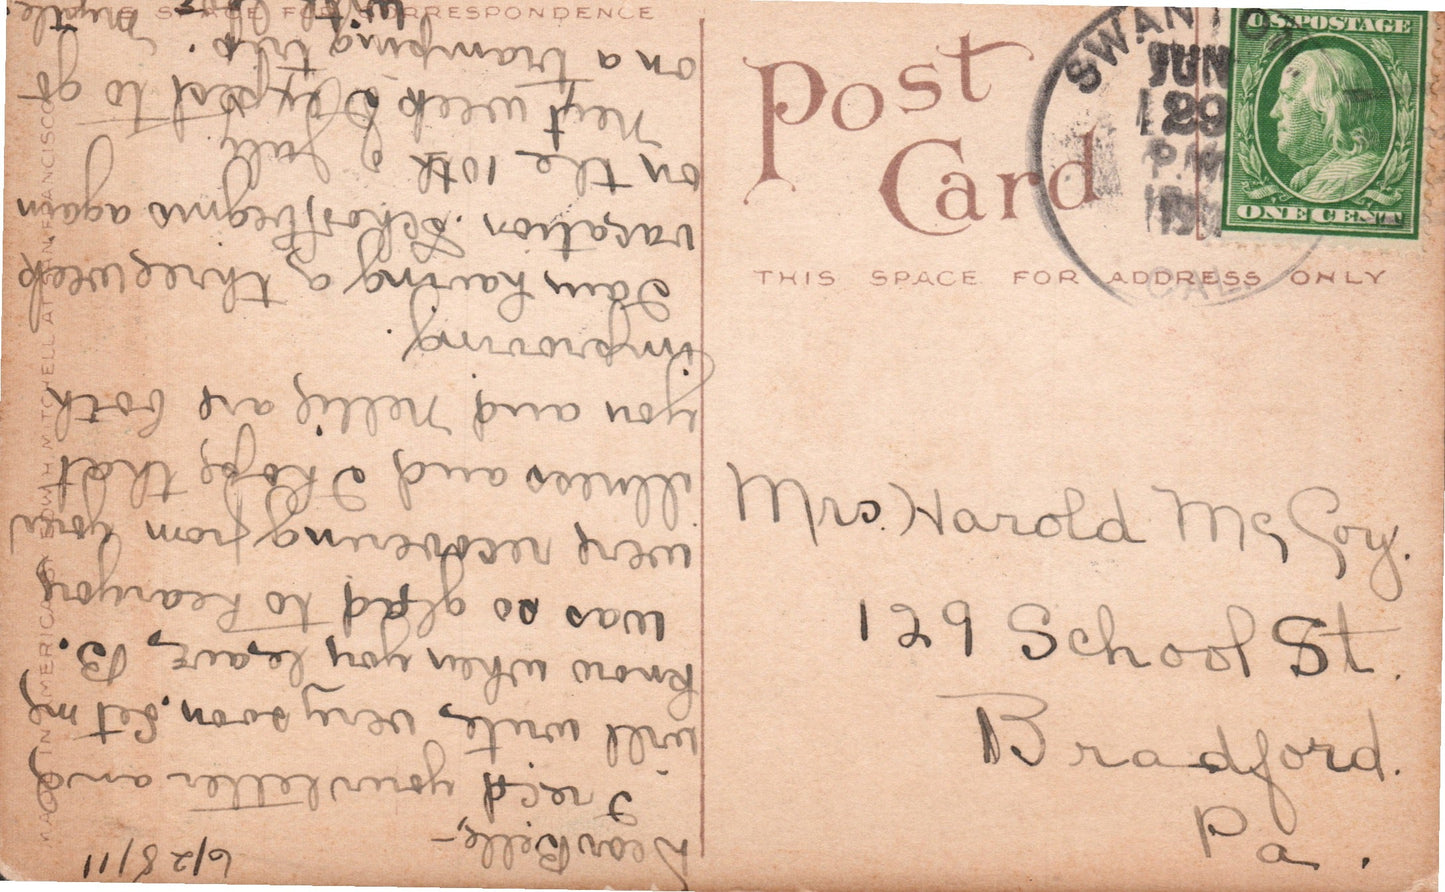 THIS SPACE FOR CORRESPONDENCE
Post
Card
THIS SPACE FOR ADDRESS ONLY
SWANTON
JUN
29
P.M.
CAL
U.S. POSTAGE
ONE CENT
Mrs. Harold McCoy.
129 School St.
Bradford.
Pa.
6/28/11
Dear Belle,-
I rec'd your letter and
will write very soon. Let me
know when you leave B.
was so glad to hear you
were recovering from your
illness and I hope that
you and Nellie are both
improving.
I am having a three week
vacation. School begins again
on the 10th of July
Next week I expect to go
on a tramping trip.
With love
Myrtle
MADE IN AMERICA BY EDW. H. MITCHELL AT SAN FRANCISCO